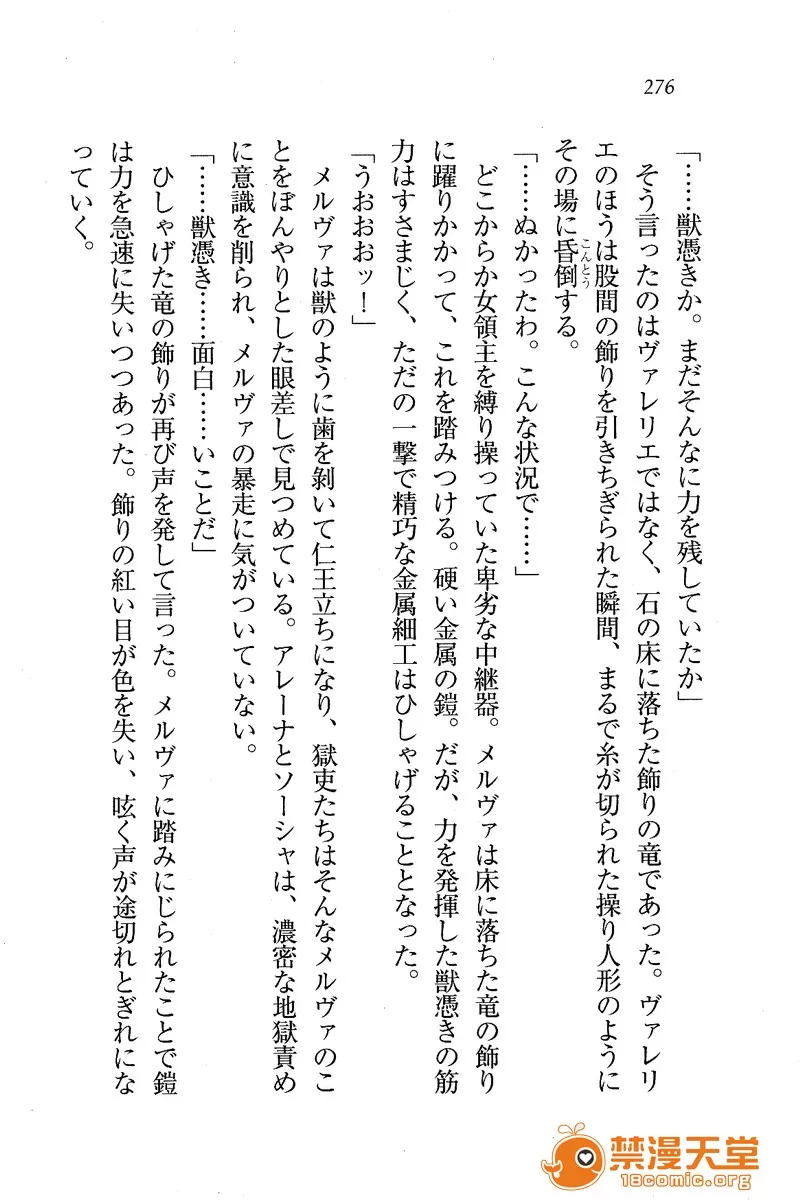 276
「……獣憑きか。まだそんなに力を残していたか」
　そう言ったのはヴァレリエではなく、石の床に落ちた飾りの竜であった。ヴァレリ
エのほうは股間の飾りを引きちぎられた瞬間、まるで糸が切られた操り人形のように
その場に昏倒する。
こんとう
「……ぬかったわ。こんな状況で……」
　どこからか女領主を縛り操っていた卑劣な中継器。メルヴァは床に落ちた竜の飾り
に躍りかかって、これを踏みつける。硬い金属の鎧。だが、力を発揮した獣憑きの筋
力はすさまじく、ただの一撃で精巧な金属細工はひしゃげることとなった。
「うおおおッ！」
　メルヴァは獣のように歯を剝いて仁王立ちになり、獄吏たちはそんなメルヴァのこ
とをぼんやりとした眼差しで見つめている。アレーナとソーシャは、濃密な地獄責め
に意識を削られ、メルヴァの暴走に気がついていない。
「……獣憑き……面白……いことだ」
　ひしゃげた竜の飾りが再び声を発して言った。メルヴァに踏みにじられたことで鎧
は力を急速に失いつつあった。飾りの紅い目が色を失い、呟く声が途切れとぎれにな
っていく。
禁漫天堂
18comic.org